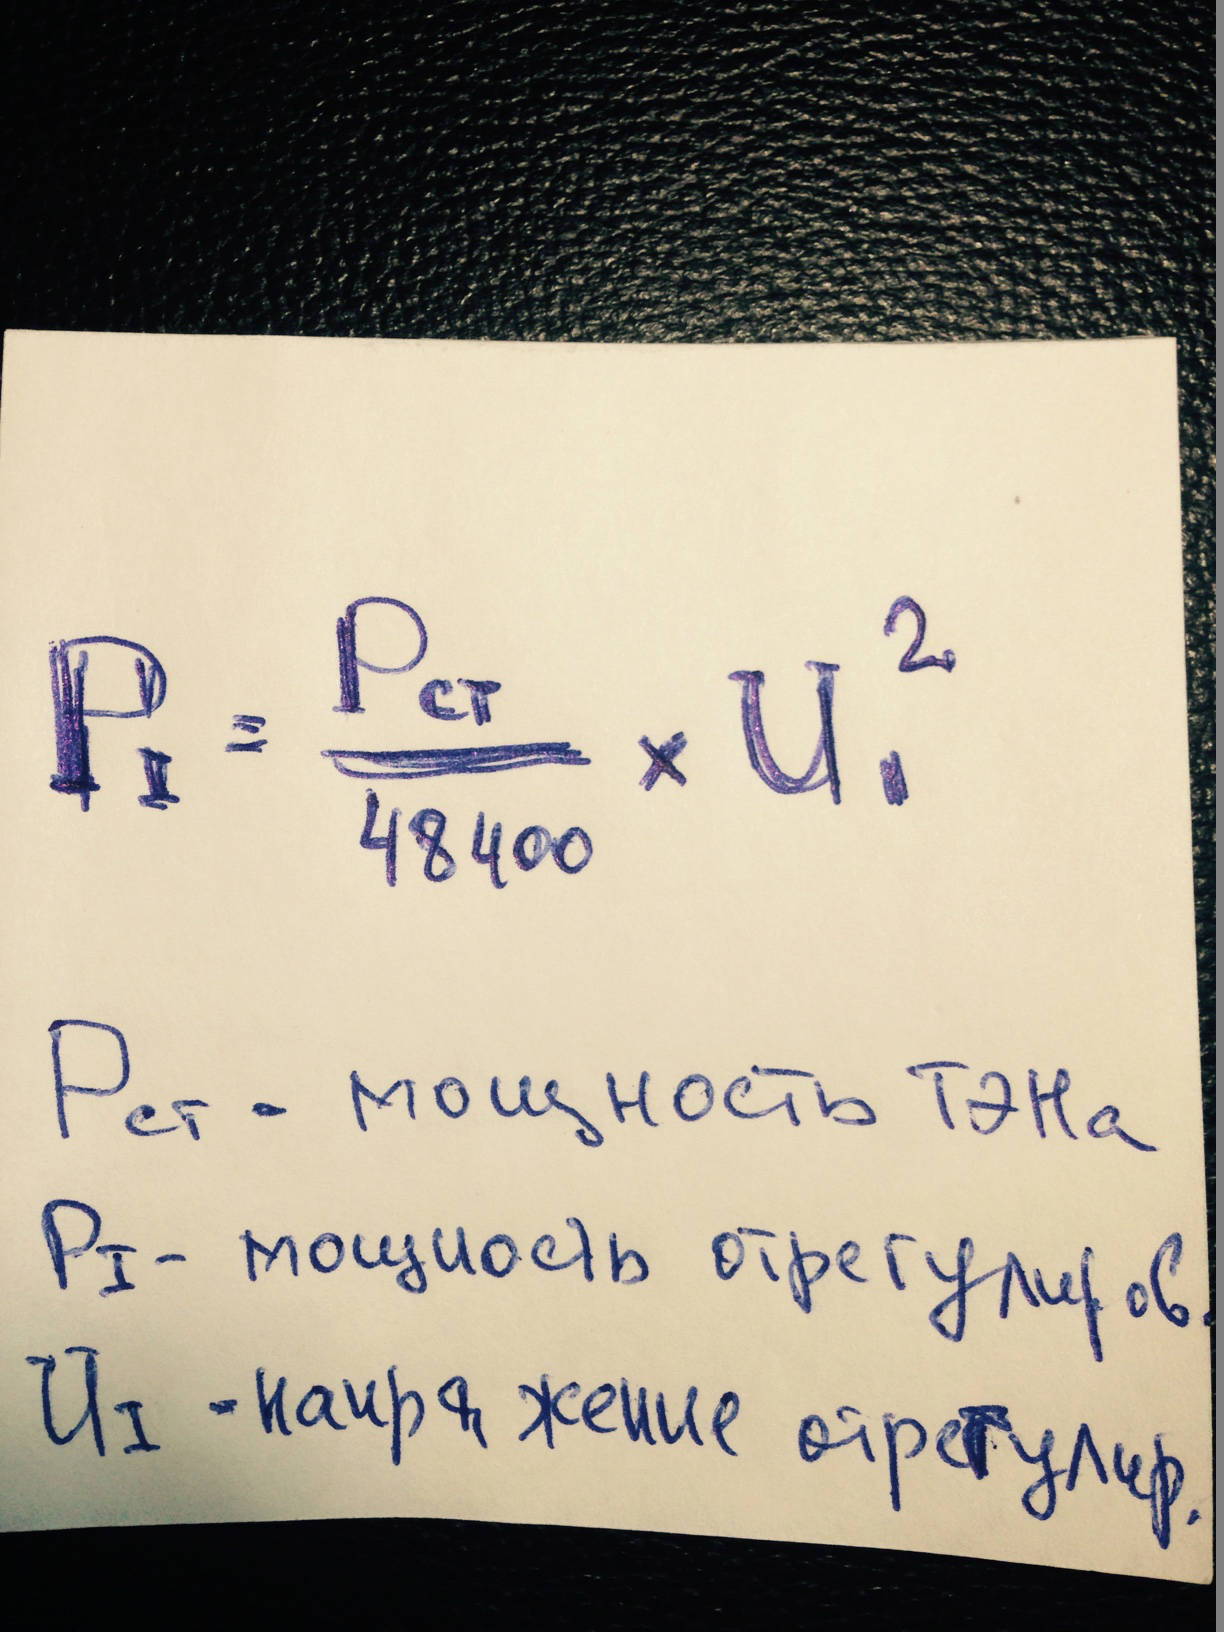 P_I = P_ст / 48400 × U_1²
P_ст - мощность ТЭНа
P_I - мощность отрегулиров.
U_I - напряжение отрегулир.